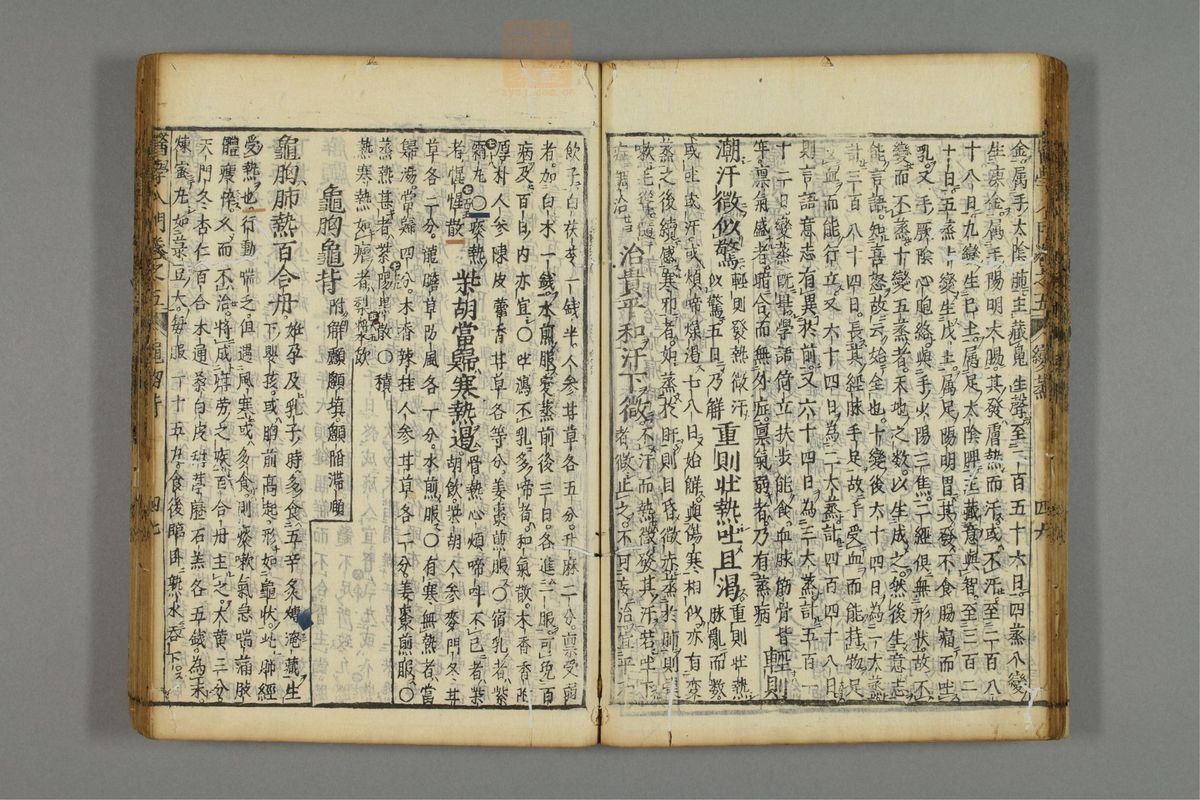 金屬手太陰肺主藏魄生聲至二百五十六日四蒸八變
生庚金屬手陽明大腸其發膚熱而汗或不汗至二百八
十八日九變生已土屬足太陰脾主藏意與智至三百二
十日五蒸十變生戊土屬足陽明胃其發不食腸痛而吐
乳又手厥陰心胞絡與手火陽三焦二經俱無形狀故不
變而不蒸十變五蒸者天地之數以生成之然後生意志
能言語知喜怒故云始全也十變後六十四日為一大蒸
計三百八十四日長其經脉手足故手受血而能持物足
受血而能行立又六十四日為二大蒸計四百四十八日
則言語意志有異於前又六十四日為三大蒸計五百一
十二日變蒸既畢學語倚立扶步能食血脉筋骨皆
年稟氣盛者暗合而無外症稟氣弱者乃有蒸病 輕則
潮汗微似驚 輕則發熱微汗似驚五日乃解 重則壯熱吐且渴 重則壯熱脉亂而數
或吐或汗或煩啼燥渴七八日始解與傷寒相似亦有變
蒸之後續感寒邪者如蒸於肝則目昏微赤蒸於肺則
嗽毛聳 不汗而熱微發其汗若吐下
治貴平和汗下微 者微止之不可妄治宜平
飲子白茯苓一錢半人參甘草各五分升麻二分稟受弱
者加白木一錢水煎服變蒸前後三日各進一服可免百
病及百日內亦宜〇吐瀉不乳多啼者和氣散木香香附
厚朴人參陳皮藿香甘草各等分姜棗煎服〇宿乳者紫
霜丸〇痰熱 柴胡當歸寒熱邊 骨熱心煩啼叫不已者柴
者惺惺散 胡飲柴胡人參麥門冬甘
草各二分龍膽草防風各一分水煎服〇有寒無熱者當
歸湯當歸四分木香辣桂人參甘草各二分姜棗煎服〇
蒸熱甚者紫陽黑散〇積
熱寒熱如瘧者梨漿飲
龜胸龜背 附解顱顱填顱陷滯頤
龜胸肺熱百合丹 姙孕及乳子時多食五辛炙煿溫藏生
下嬰孩或胸前高起形如龜狀此肺經
受熱也行動喘乏但遇風寒或多食則痰嗽氣急喘滿肢
體瘦倦久而不治將成疳勞之疾百合丹主之大黃三分
天門冬杏仁百合木通桑白皮甜葶藶石羔各五錢為末
煉蜜丸如菉豆大每服十五丸食後臨卧熟水吞下
醫學入門卷之五 龜胸背 四七